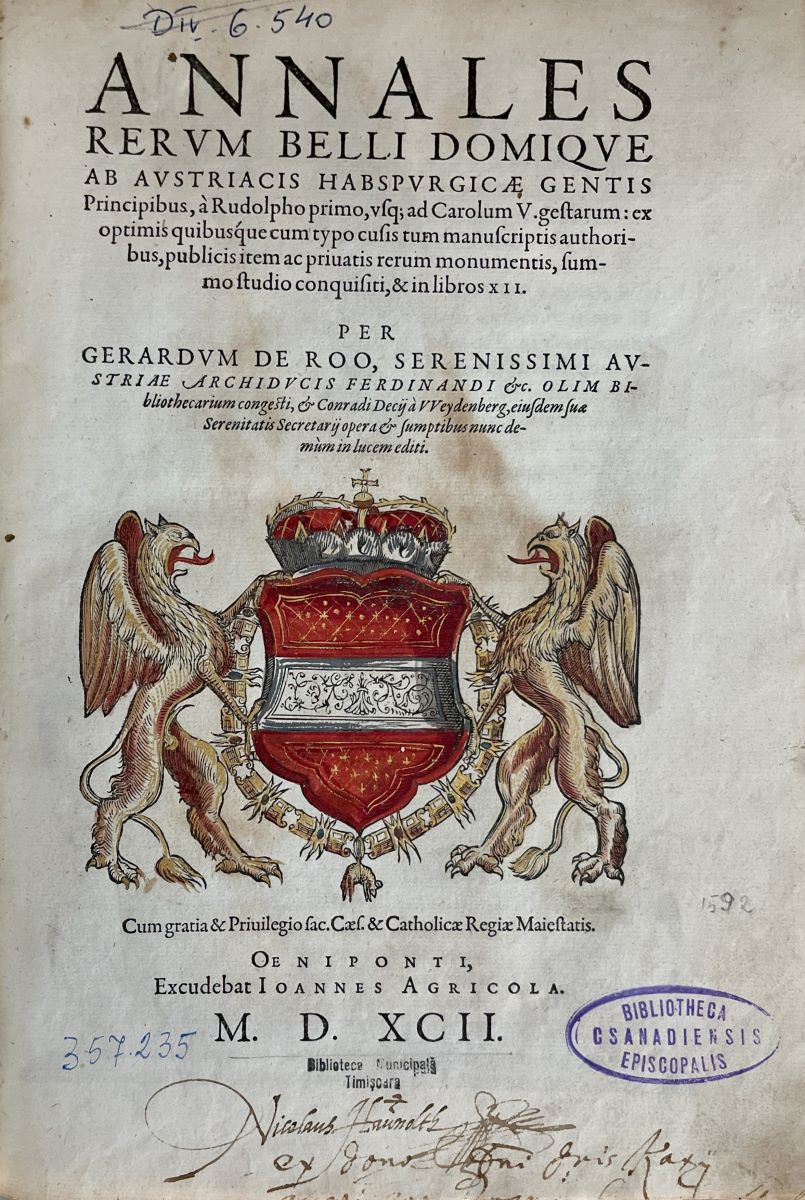 Div. 6.540
ANNALES
RERVM BELLI DOMIQVE
AB AVSTRIACIS HABSPVRGICÆ GENTIS
Principibus, à Rudolpho primo, vſq; ad Carolum V. geſtarum: ex
optimis quibuſque cum typo cuſis tum manuſcriptis authori-
bus, publicis item ac priuatis rerum monumentis, ſum-
mo ſtudio conquiſiti, & in libros XII.
PER
GERARDVM DE ROO, SERENISSIMI AV-
STRIAE ARCHIDVCIS FERDINANDI &c. OLIM BI-
bliothecarium congeſti, & Conradi Decij à VVeydenberg, eiuſdem ſuæ
Serenitatis Secretarij opera & ſumptibus nunc de-
mùm in lucem editi.
Cum gratia & Priuilegio ſac. Cæſ. & Catholicæ Regiæ Maieſtatis.
1592
OENIPONTI,
Excudebat IOANNES AGRICOLA.
M. D. XCII.
357.235
BIBLIOTHECA
CSANADIENSIS
EPISCOPALIS
Biblioteca Municipală
Timișoara
Nicolaus
ex dono